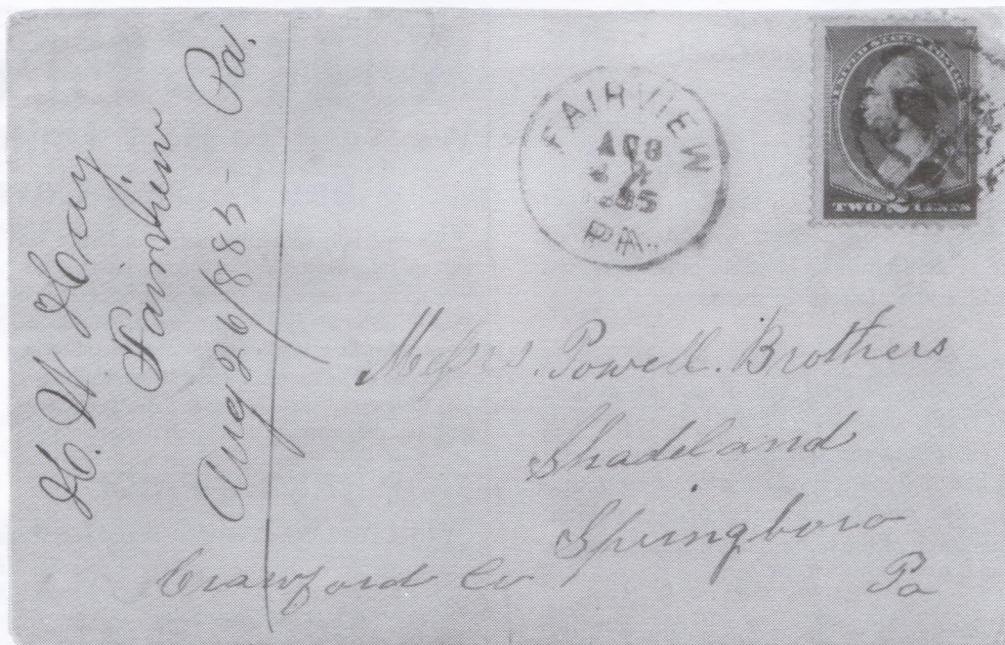 H. W. Hay
Fairview Pa.
Aug 26/885-
FAIRVIEW
AUG
PA.
UNITED STATES POSTAGE
TWO 2 CENTS
Messrs. Powell. Brothers
Shadeland
Springboro
Crawford Co Pa